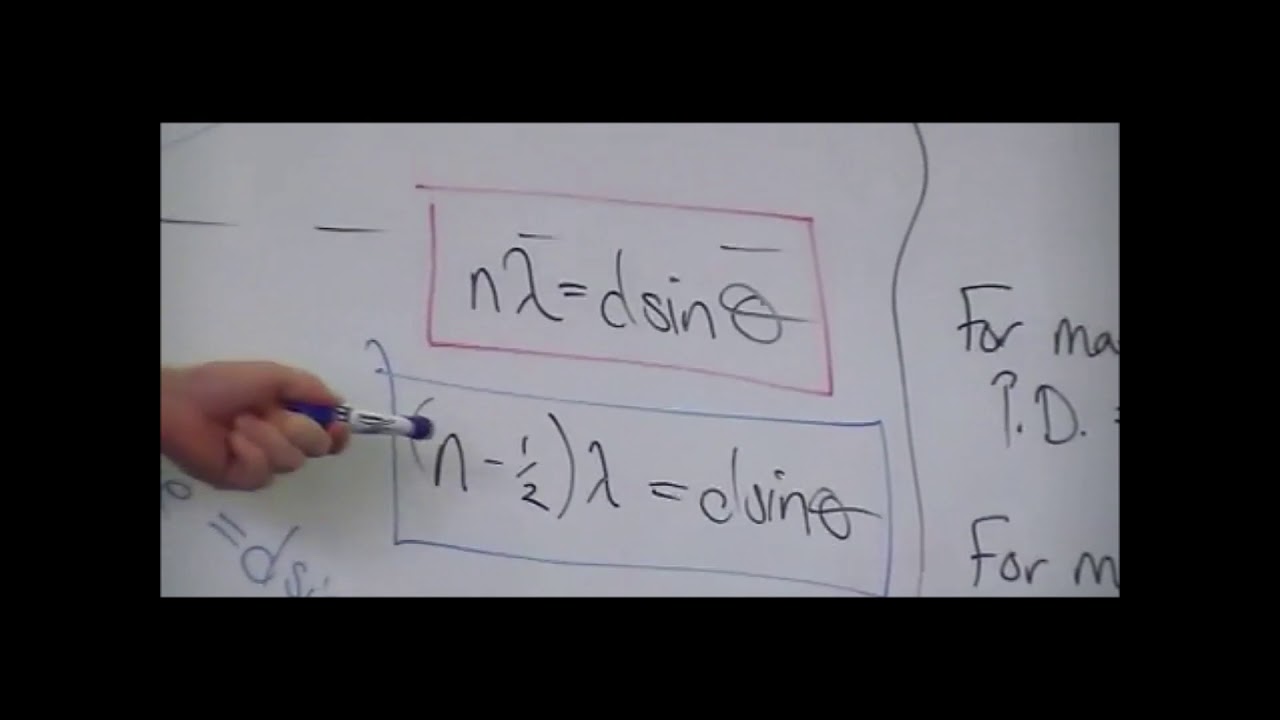 nλ = d sin θ
(n - 1/2) λ = d sin θ
= d si
For ma
P.D. =
For m